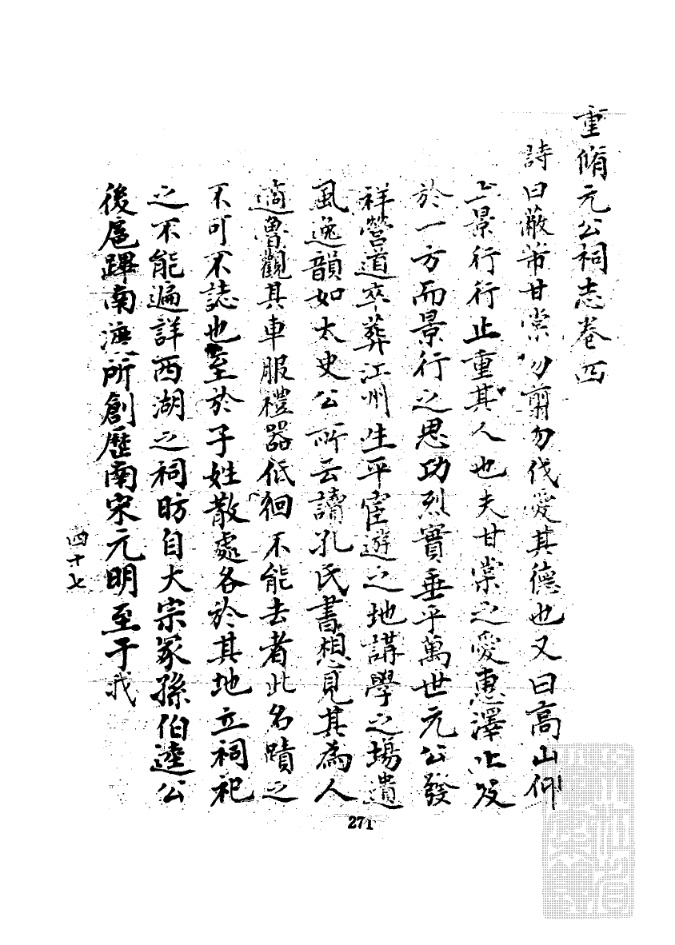 重脩元公祠志卷四
詩曰蔽芾甘棠勿翦勿伐愛其德也又曰高山仰
止景行行止重其人也夫甘棠之愛惠澤止及
於一方而景行之思功烈實垂乎萬世元公發
祥營道卒葬江州生平宦遊之地講學之場遺
風逸韻如太史公所云讀孔氏書想見其為人
適魯觀其車服禮器低徊不能去者此名蹟之
不可不誌也至於子姓散處各於其地立祠祀
之不能遍詳西湖之祠昉自大宗冢孫伯逵公
後扈蹕南渡所創歷南宋元明至于我
四十七
271